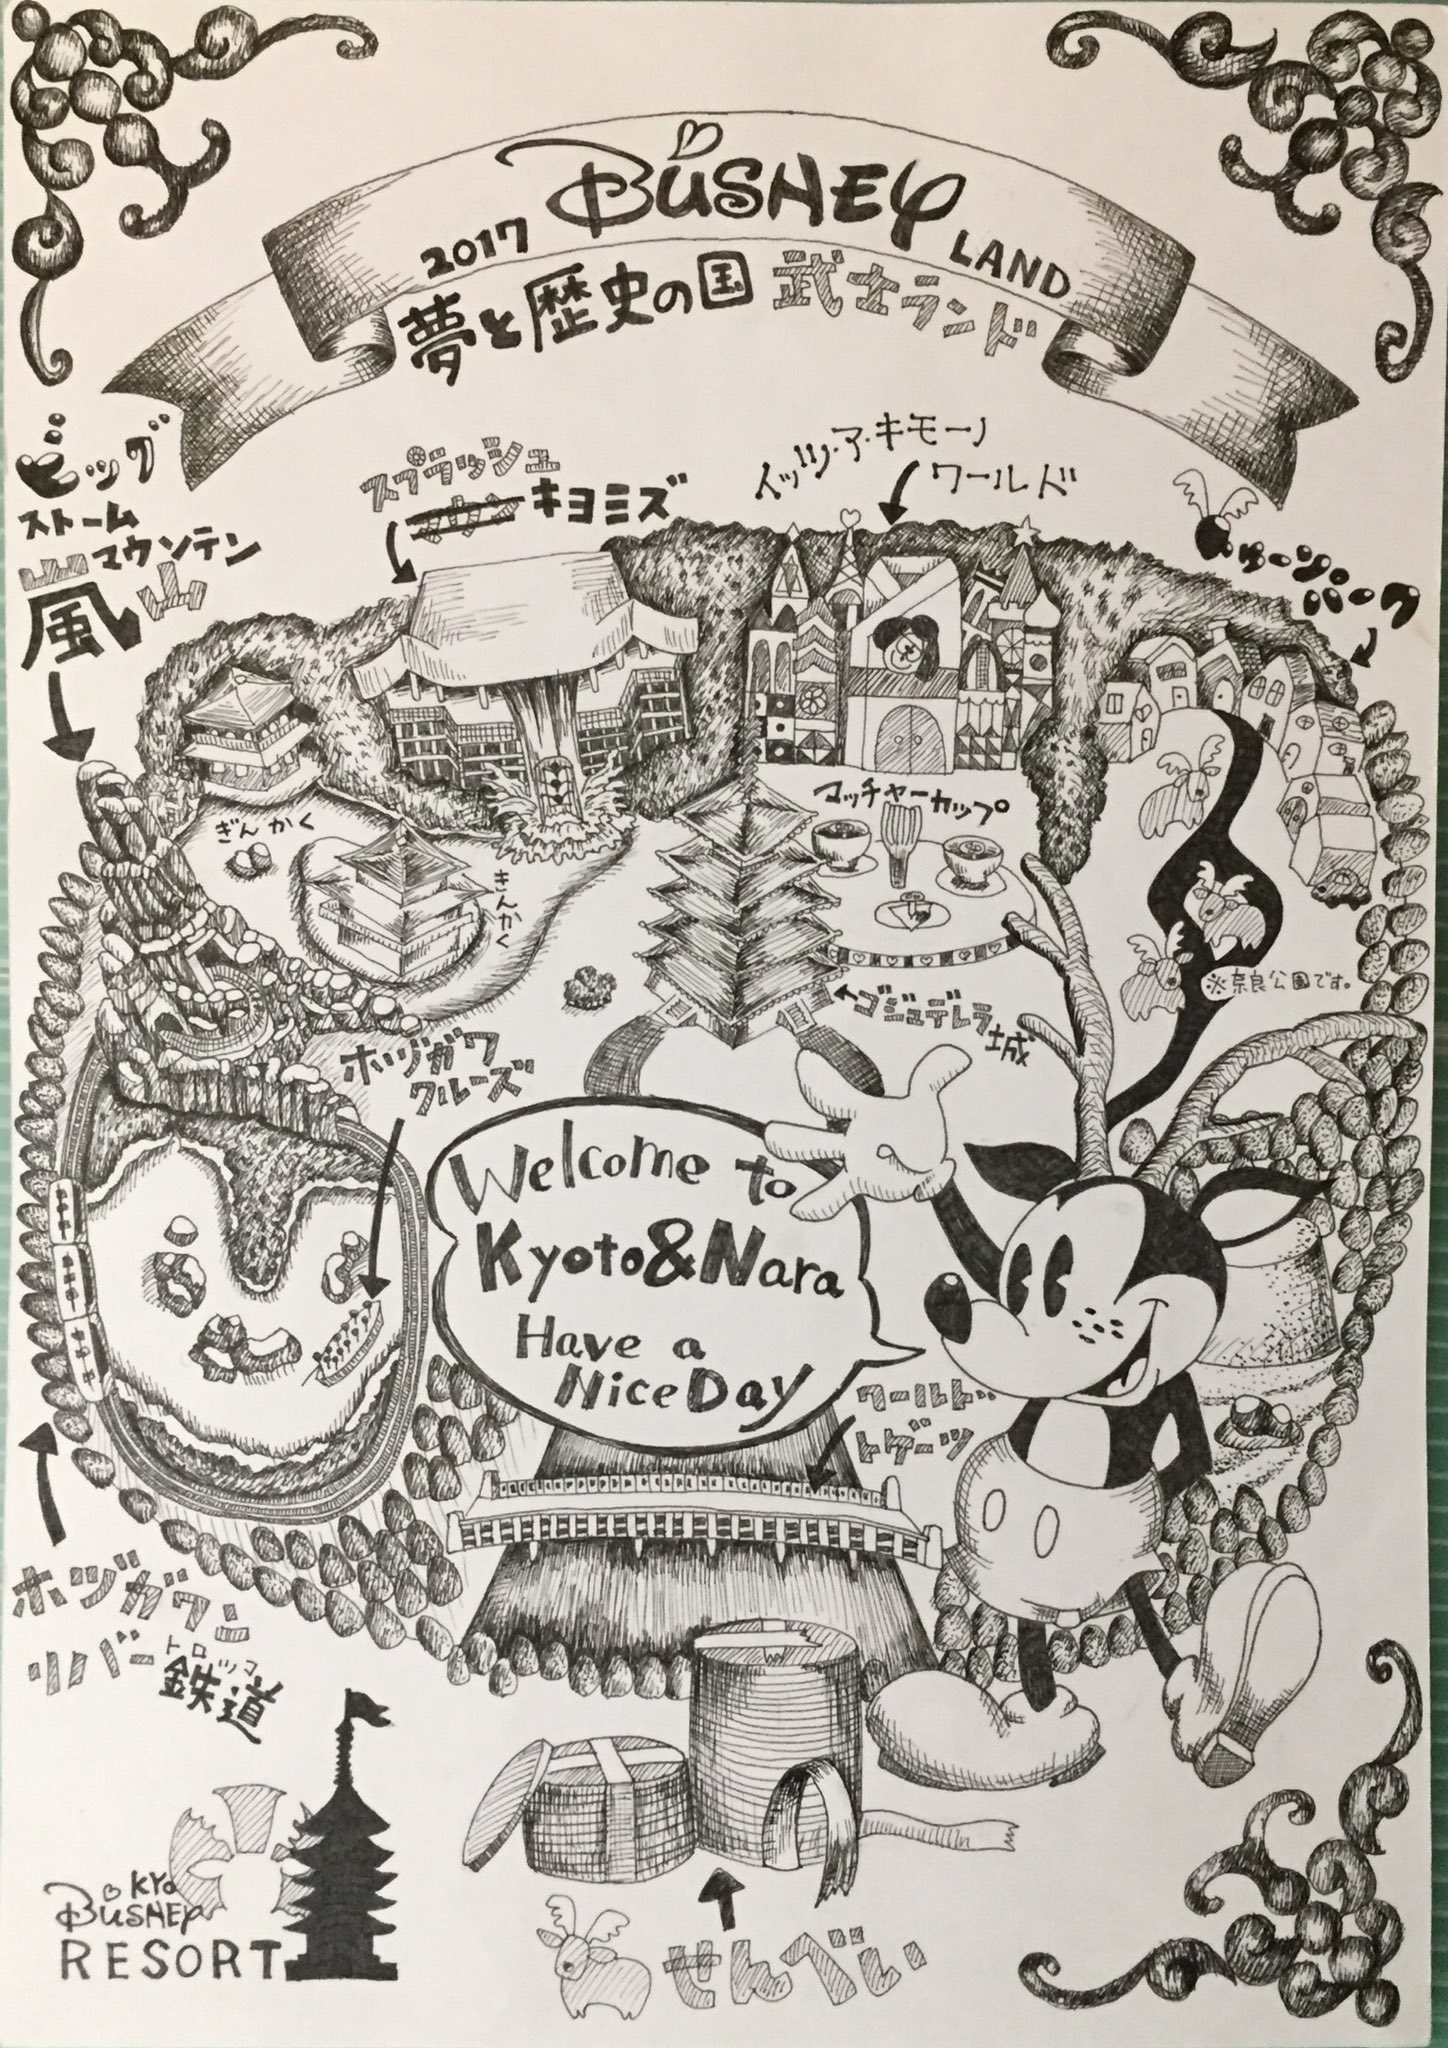 2017 BUSHEY LAND
夢と歴史の国 武士ランド
ビッグ
ストーム
マウンテン
風山
スプラッシュ
キヨミズ
イッツ・ア・キモーノ
ワールド
トゥーンパーク
ぎんかく
きんかく
マッチャーカップ
←ゴジュデレラ城
※奈良公園です。
ホヅガワ
クルーズ
Welcome to
Kyoto&Nara
Have a
Nice Day
ワールド
トゲーツ
ホヅガワン
リバー鉄道
トロッコ
KYO
BUSHEY
RESORT
せんべい